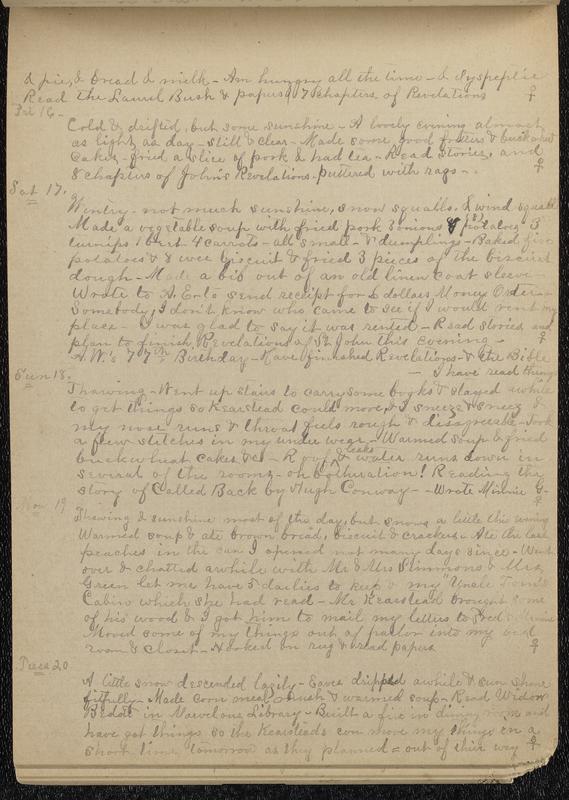 & pie, & bread & milk - Am hungry all the time - & dyspeptic
Read the Laurel Bush & papers & 7 chapters of Revelations ♀
Fri 16 -
Cold & drifted, but some sunshine - A lovely evening almost
as light as day - still & clear - Made some good fritters & buckwheat
cakes - fried a slice of pork & had tea - Read stories, and
8 chapters of John's Revelations - puttered with rags - ♀
Sat 17.
Wintry - not much sunshine, snow squalls & wind squalls
Made a vegetable soup with fried pork 3 onions & potatoes 3
turnips 1 beet 4 carrots - all small - & dumplings - Baked five
potatoes & 8 wee biscuit & fried 3 pieces of the biscuit
dough - Made a bib out of an old linen coat sleeve -
Wrote to A. E. to send receipt for 6 dollars Money Order -
Somebody, I don't know who came to see if I would rent my
place - & was glad to say it was rented - Read stories and
plan to finish Revelations of St John this evening - ♀
A.W.'s 77th Birthday - Have finished Revelations - & the Bible
- I have read things
Sun 18.
Thawing - Went up stairs to carry some books & stayed awhile
to get things so Kearstead could move, & I sneeze & sneeze &
my nose runs & throat feels rough & disagreeable - Took
a few stitches in my under wear - Warmed soup & fried
buckwheat cakes &c - Roof leaks & water runs down in
several of the rooms - oh botheration! Reading the
story of Called Back by Hugh Conway - - Wrote Minnie G - ♀
Mon 19
Thawing & sunshine most of the day, but snows a little this evening
Warmed soup & ate brown bread, biscuit & crackers - Ate the last
peaches in the can I opened not many days since - Went
over & chatted awhile with Mr & Mrs Simmons & Mrs
Green let me have 5 dailies to keep & my "Uncle Tom's
Cabin" which she had read - Mr Kearstead brought some
of his wood & I got him to mail my letters to Fred & Minnie
Moved some of my things out of parlor into my bed
room & closet - Hooked on rug & read papers ♀
Tues 20
A little snow descended lazily - Eaves dripped awhile & sun shone
fitfully - Made corn meal mush & warmed soup - Read Widow
Bedott in Marvelous Library - Built a fire in dining room and
have got things so the Kearsteads can move my things in a
short time, tomorrow as they planned = out of their way ♀